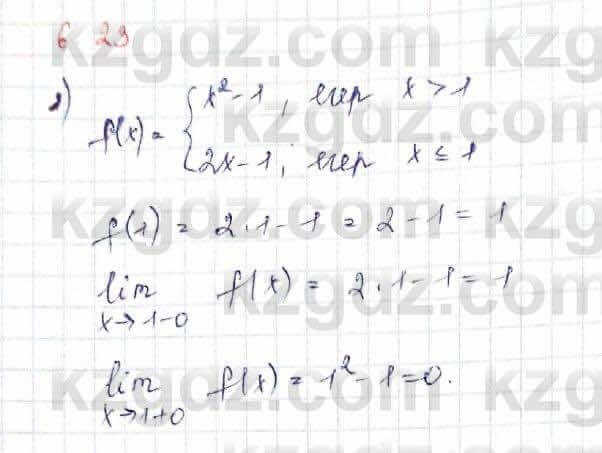 6 23
1)
f(x) = { x² - 1, егер x > 1
2x - 1, егер x ≤ 1
f(1) = 2 · 1 - 1 = 2 - 1 = 1
lim f(x) = 2 · 1 - 1 = 1
x → 1-0
lim f(x) = 1² - 1 = 0.
x → 1+0
kzgdz.com
kzgdz.com
kzgdz.com
kzgdz.com
kzgdz.com